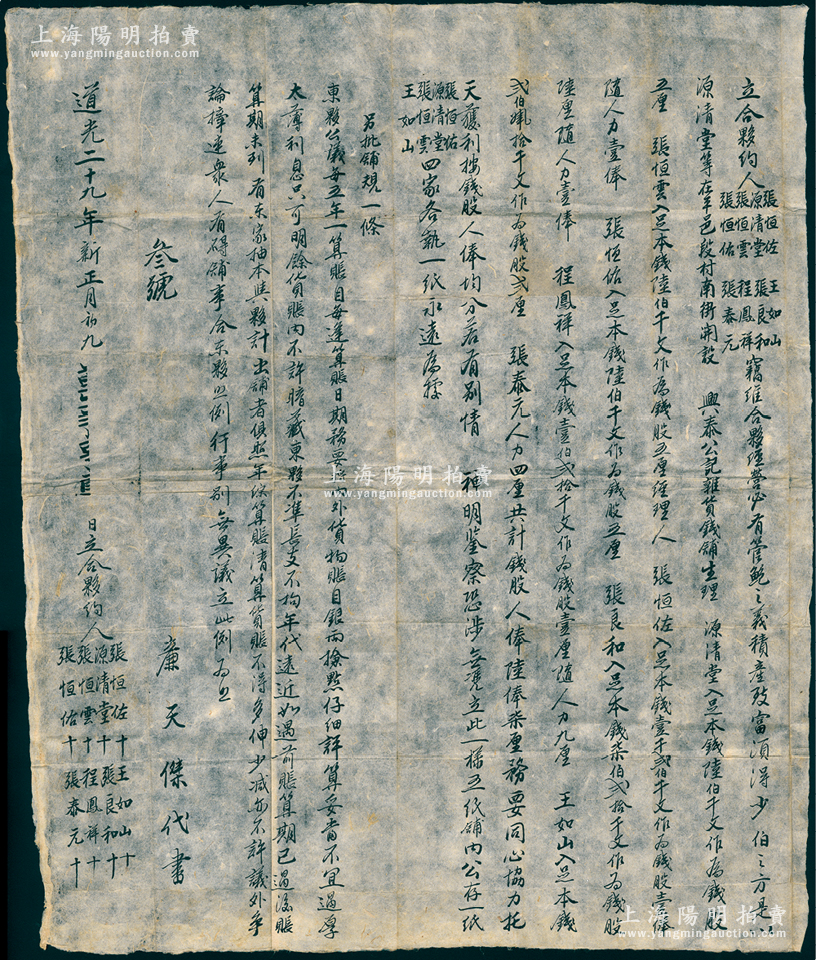 立合夥約人張恒佐 王如山 源清堂 張良和 張恒雲 程鳳祥 張恒佑 張泰元 竊維合夥經營必有管鮑之義積產致富須得少伯之方是以
源清堂等在平邑段村南街開設 興泰公記雜貨錢舖生理 源清堂入足本錢陸伯千文作為錢股
五厘 張恒雲入足本錢陸伯千文作為錢股五厘經理人 張恒佐入足本錢壹千弍伯千文作為錢股壹俸
隨人力壹俸 張恒佑入足本錢陸伯千文作為錢股五厘 張良和入足本錢柒伯弍拾千文作為錢股
陸厘隨人力壹俸 程鳳祥入足本錢壹伯弍拾千文作為錢股壹厘隨人力九厘 王如山入足本錢
弍伯肆拾千文作為錢股弍厘 張泰元人力四厘共計錢股人俸陸俸柒厘務要同心協力托
天獲利按錢股人俸均分若有別情 神明鑒察恐涉無凭立此一樣五紙舖内公存一紙
張恒佐 源清堂 張恒雲 王如山 四家各執一紙永遠為據
另批舖規一條
東夥公議每五年一算賬目每逢算賬日期務要將内外貨物賬目銀兩撿點仔細評算妥當不宜過厚
太薄利息只可明餘貨賬内不許暗藏東夥不準長支不拘年代遠近如遇前賬算期已過後賬
算期未到有東家抽本與夥計出舖者俱照年終算賬清算貨賬不得多伸少減亦不許議外爭
論捧連衆人有碍舖事合東夥照例行事別無異議立此例為照
叁號
廉天傑代書
道光二十九年新正月初九
日立合夥約人張恒佐十 王如山十 源清堂十 張良和十 張恒雲十 程鳳祥十 張恒佑十 張泰元十
上海陽明拍賣
www.yangmingauction.com
上海陽明拍賣
www.yangmingauction.com
上海陽明拍賣
www.yangmingauction.com